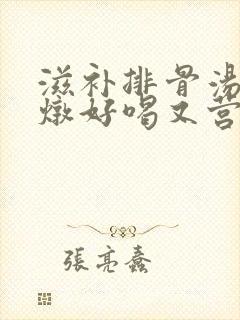 滋补排骨汤
燉好喝又营
張亮蠢